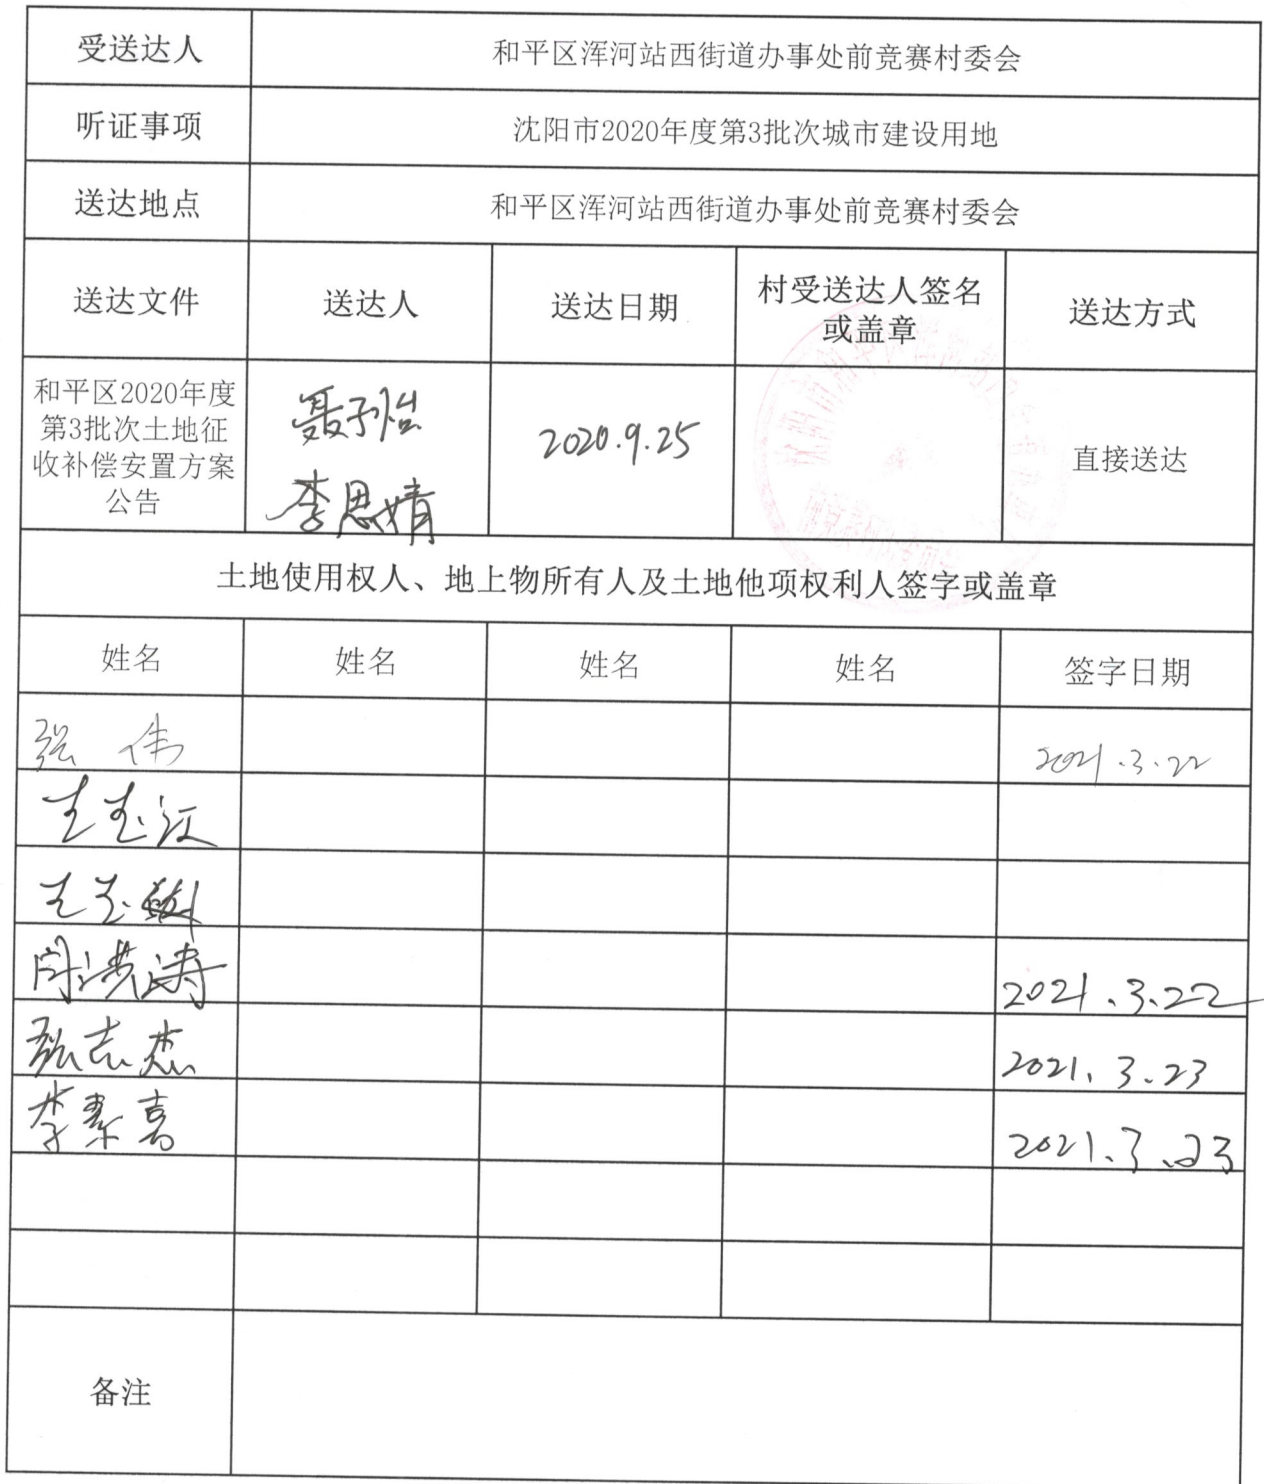 受送达人 和平区浑河站西街道办事处前竞赛村委会
听证事项 沈阳市2020年度第3批次城市建设用地
送达地点 和平区浑河站西街道办事处前竞赛村委会
送达文件 送达人 送达日期 村受送达人签名 送达方式
或盖章
和平区2020年度
第3批次土地征
收补偿安置方案
公告
聂子怡
李思婧
2020.9.25
直接送达
土地使用权人、地上物所有人及土地他项权利人签字或盖章
姓名 姓名 姓名 姓名 签字日期
张 伟 2021.3.22
王玉江
王玉
闫洪涛 2021.3.22
张志杰 2021.3.23
李素喜 2021.3.23
备注